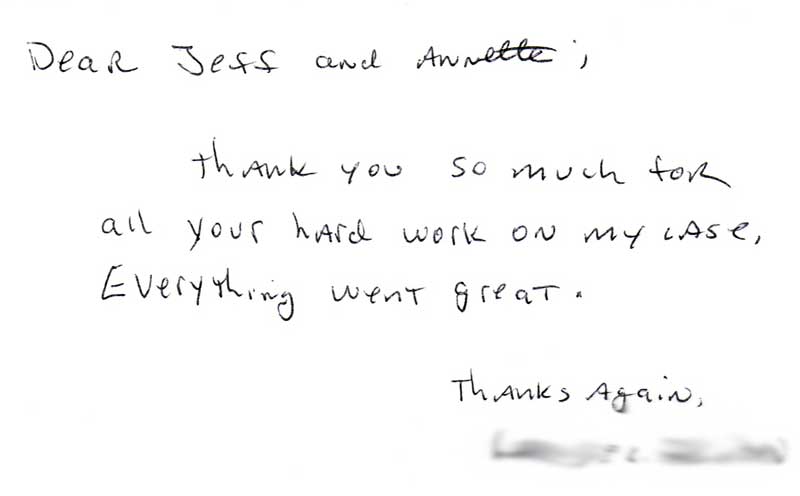 Dear Jeff and Annette;
Thank you so much for
all your hard work on my case,
Everything went great.
Thanks Again,